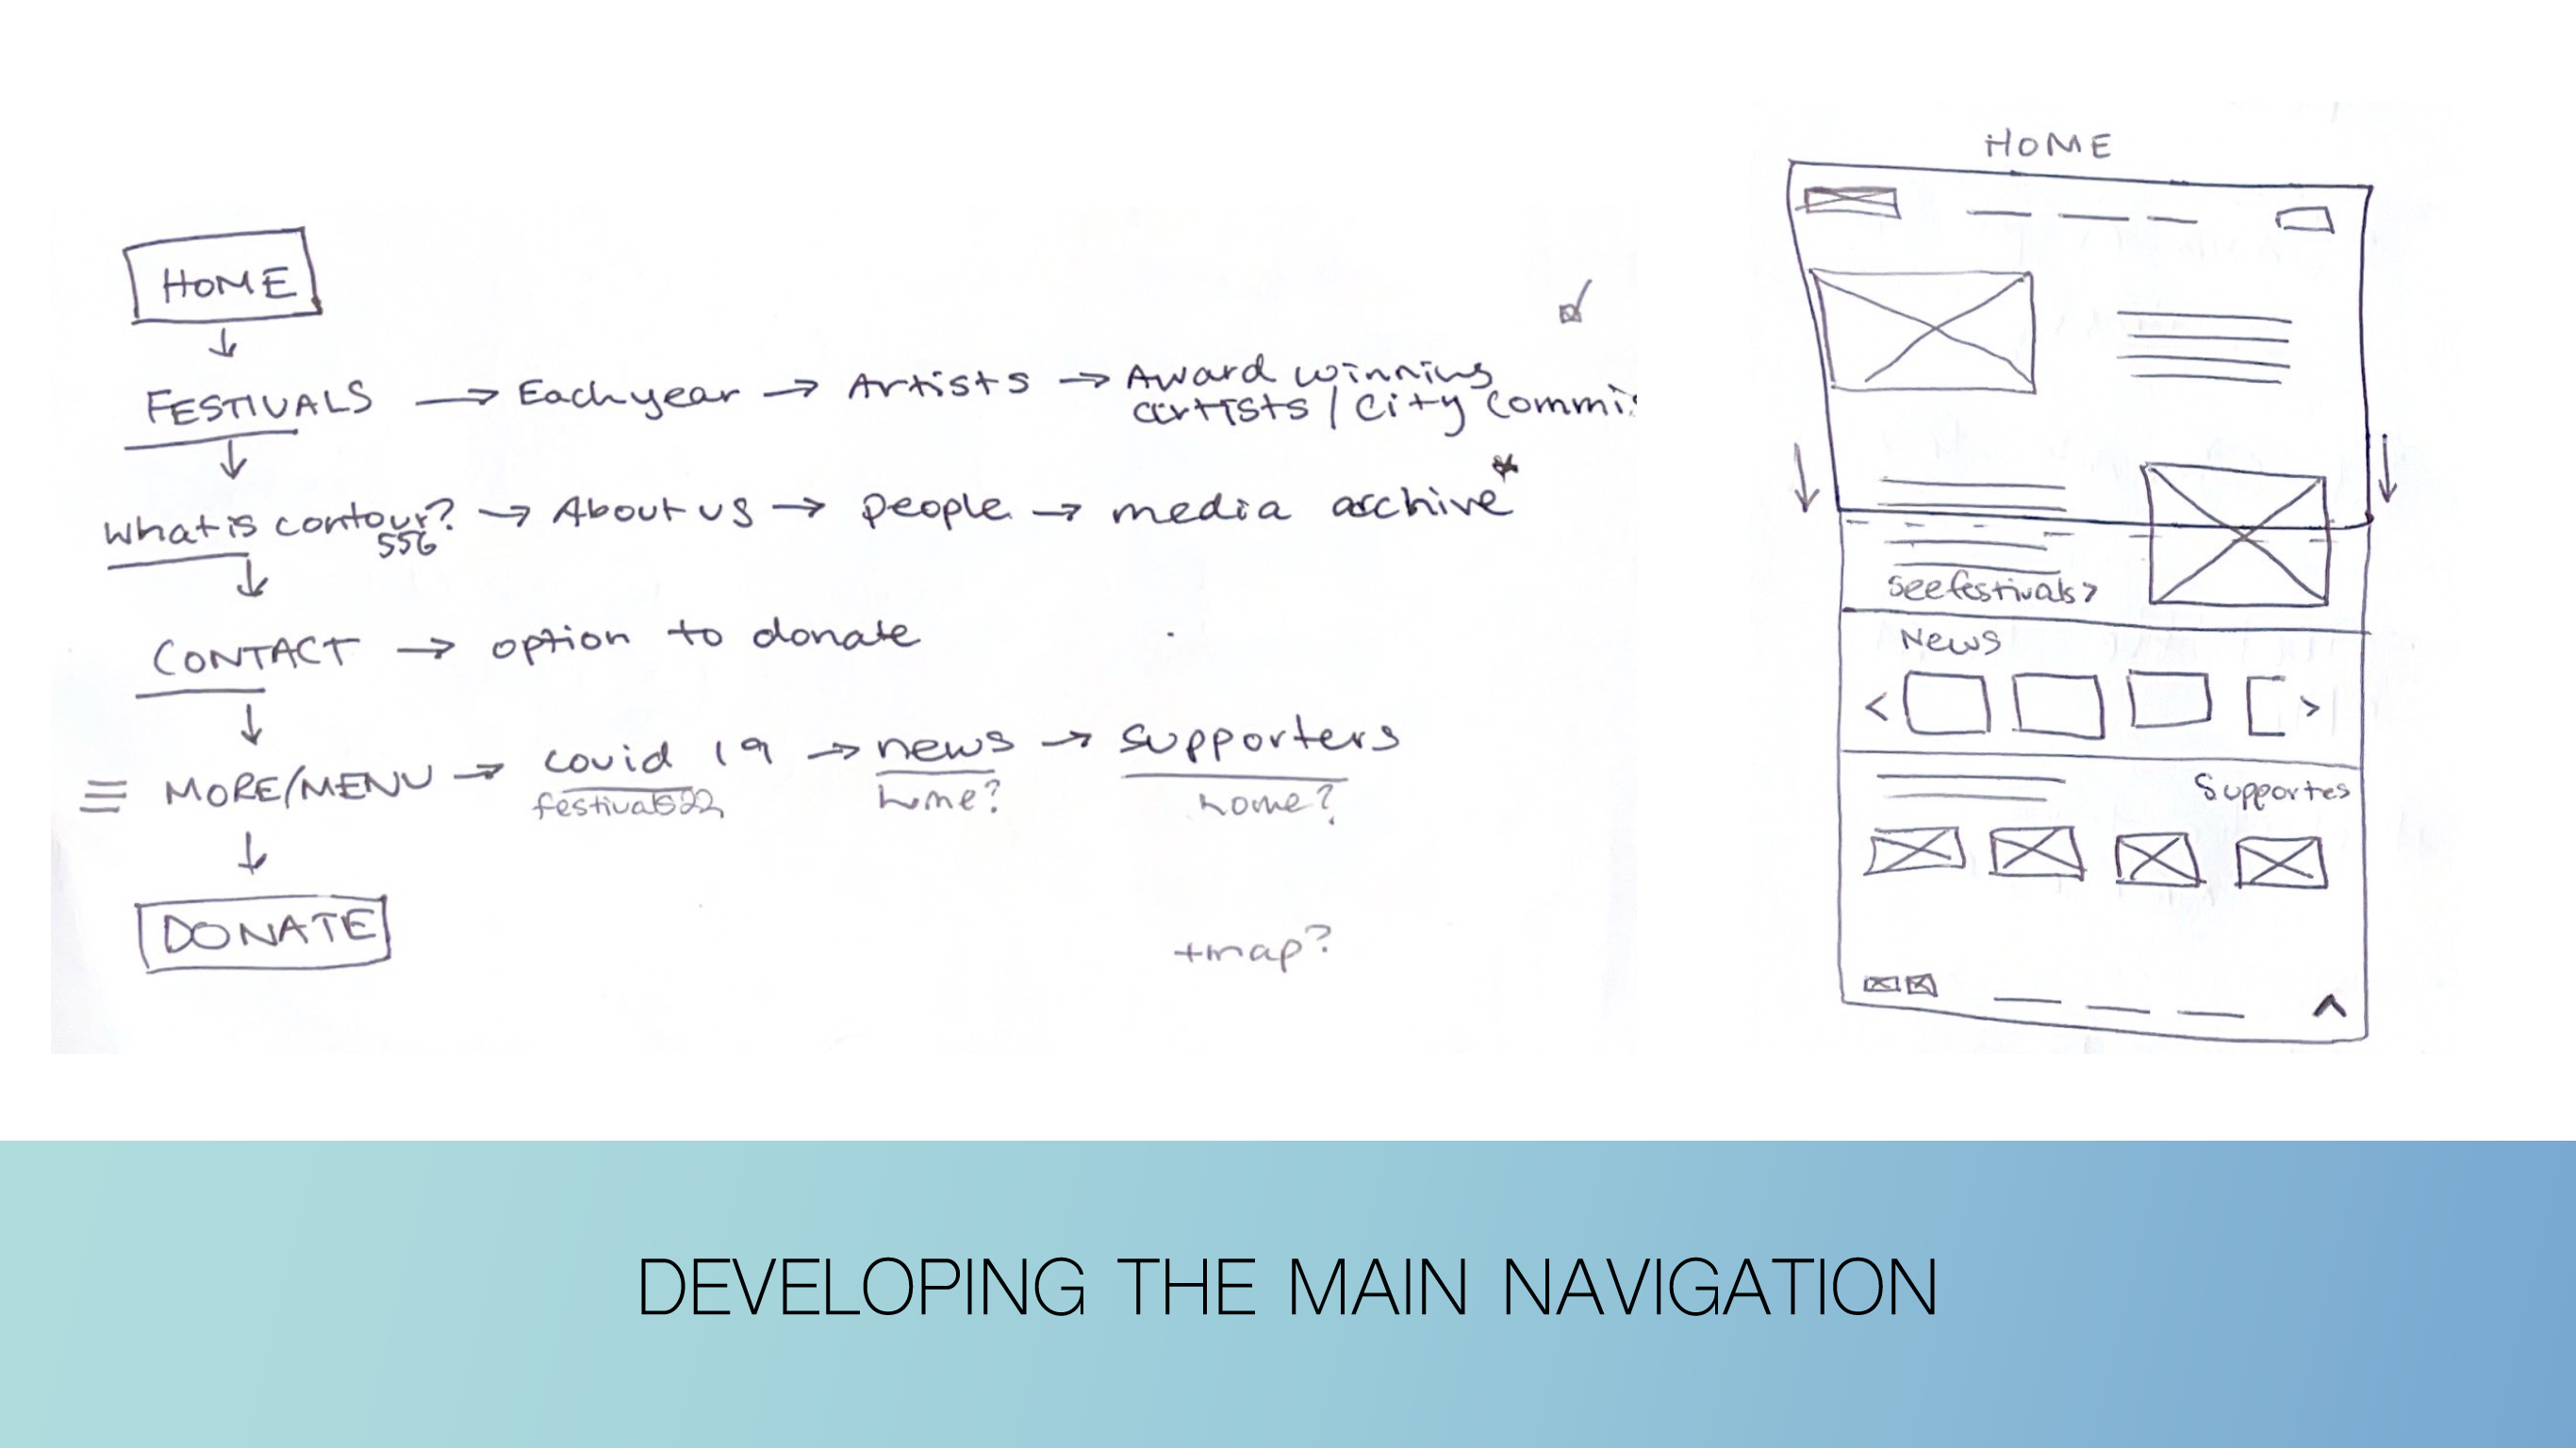 HOME
FESTIVALS → Each year → Artists → Award winning
artists / City commis
what is contour? → About us → people → media archive*
556
CONTACT → option to donate
MORE/MENU → covid 19 → news → supporters
festivals22 home? home?
DONATE
+map?
HOME
see festivals >
News
< >
Supportes
DEVELOPING THE MAIN NAVIGATION